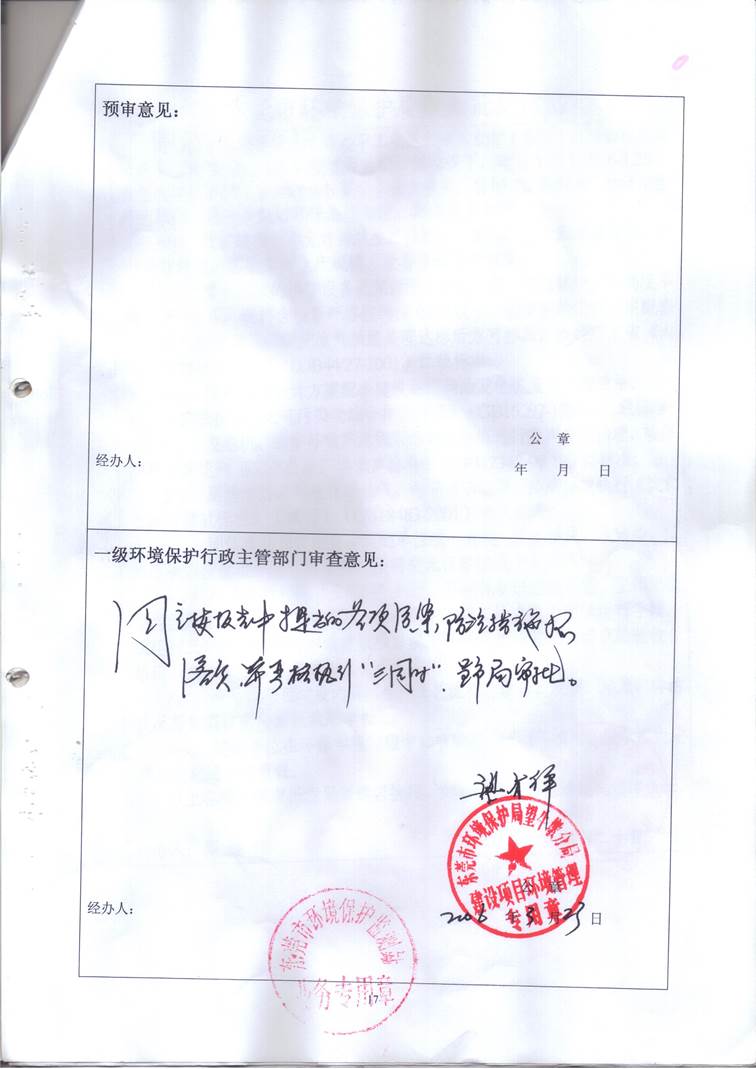 预审意见：
公 章
经办人：
年 月 日
一级环境保护行政主管部门审查意见：
各项
防治措施
落实，并严格执行“三同时”，呈市局审批。
东莞市环境保护局望牛墩分局
建设项目环境管理
专用章
公 章
经办人：
2006 年 3 月 23 日
东莞市环境保护监测站
业务专用章
17